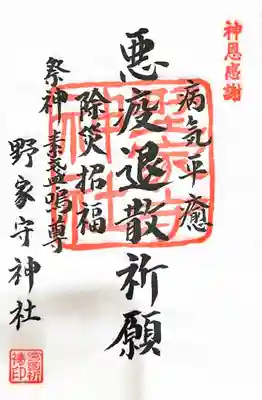 神恩感謝
病気平癒
悪疫退散祈願
除災招福
祭神 素盞嗚尊
野家守神社